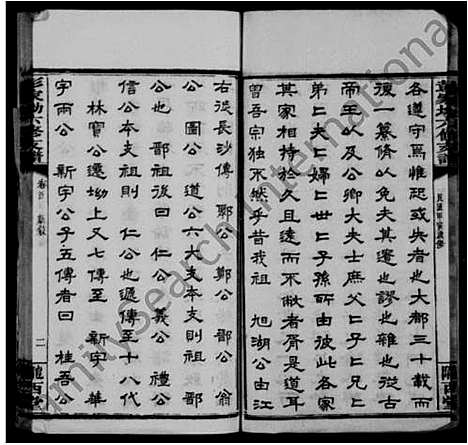 各遵守爲惟恐或失者也大都三十載而
複一纂脩以免夫其遺也謬也雜也從古
帝王以及公卿大夫士庶父父子子兄兄
弟弟夫夫婦婦世世子孫所由彼此循循
其家相持於久且遠而不敝者胥是耳
吾宗獨不然乎昔我祖 旭湖公由江
右徙長沙傳 鄢公 鄭公 鄱公 翁
公 圖公 道公六大支本支則祖
公也 鄱祖後曰 仁公 義公 禮公
信公本支祖則 仁公也遞傳至十八代
林賓公遷坳上又七傳至 新字 華
字兩公 新字公子五傳者曰 桂吾公
familysearch international
隴西堂
卷首
二